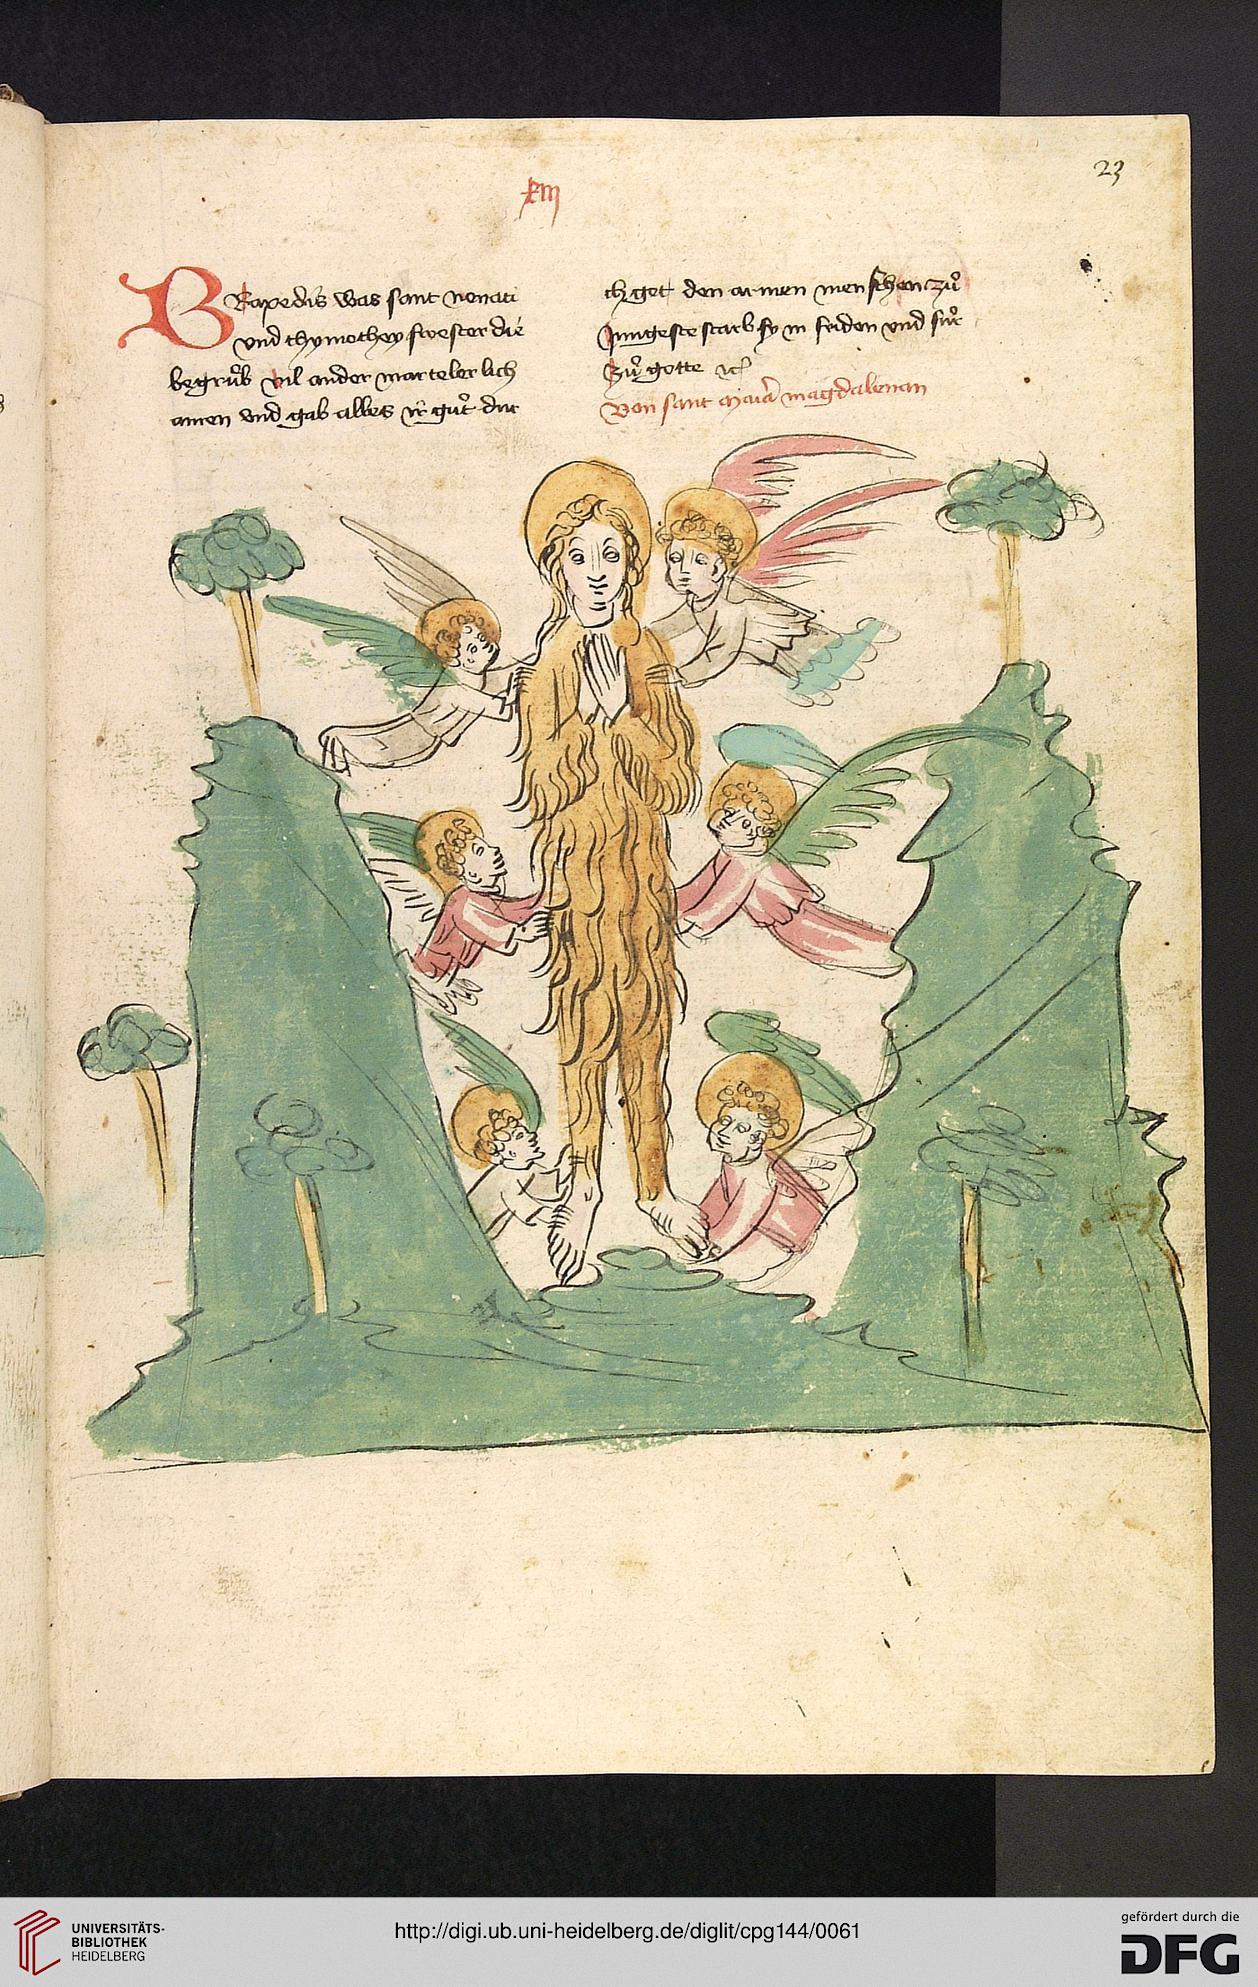 23
xiij
BRaxedis was sant nouati
vnd thymothey swester die
begrůb vil ander marteler lich
amen vnd gab alles ir gůt dur
ch get den armen menschen zů
Jungeste starb sy in friden vnd fůr
zů gotte
Von sant maria magdalenan
UNIVERSITÄTS-
BIBLIOTHEK
HEIDELBERG
http://digi.ub.uni-heidelberg.de/diglit/cpg144/0061
gefördert durch die
DFG